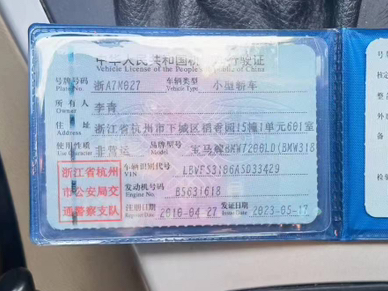 中华人民共和国机动车行驶证
Vehicle License of the People's Republic of China
号牌号码 Plate No. 浙A7M027 车辆类型 Vehicle Type 小型轿车
所有人 Owner 李青
住址 Address 浙江省杭州市下城区稻香园15幢1单元601室
使用性质 Use Character 非营运 宝马牌BMW7200LD(BMW318
浙江省杭州市公安局交通警察支队
车辆识别代号 VIN LBVFS3106ASD33429
发动机号码 Engine No. B5631618
注册日期 Register Date 2010-04-27 发证日期 Issue Date 2023-05-17